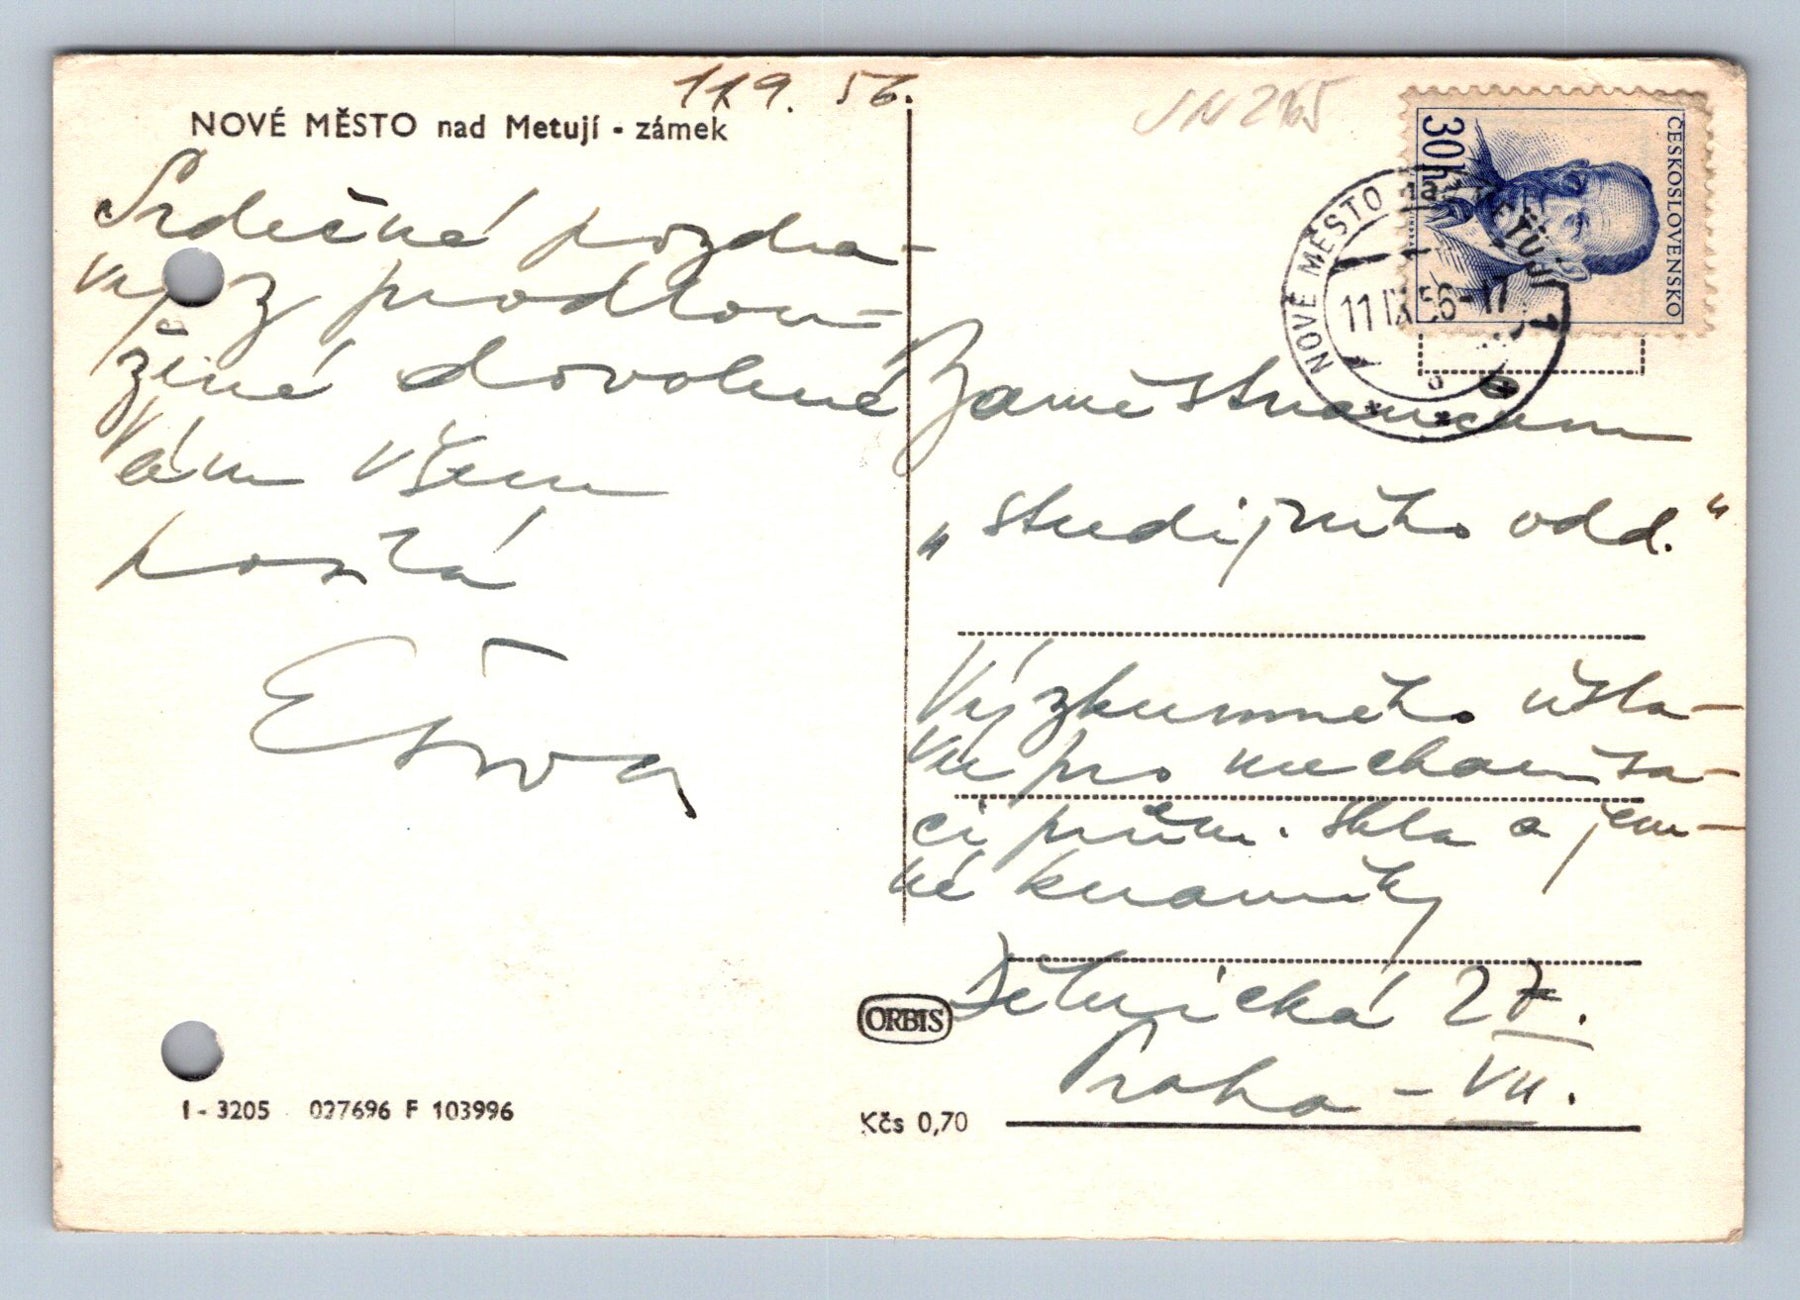 11.9. 56.
NOVÉ MĚSTO nad Metují - zámek
Srdečné pozdra-
vy z prodlou-
žené dovolené
Vám všem
posílá
UN 265
ČESKOSLOVENSKO
30h
NOVÉ MĚSTO nad METUJÍ 1
11 IX 56-17
Zaměstnancům
„studijního odd."
Výzkumného ústa-
vu pro mechanisa-
ci prům. skla a jem-
né keramiky
Dělnická 27.
Praha - VII.
ORBIS
I - 3205 027696 F 103996
Kčs 0,70